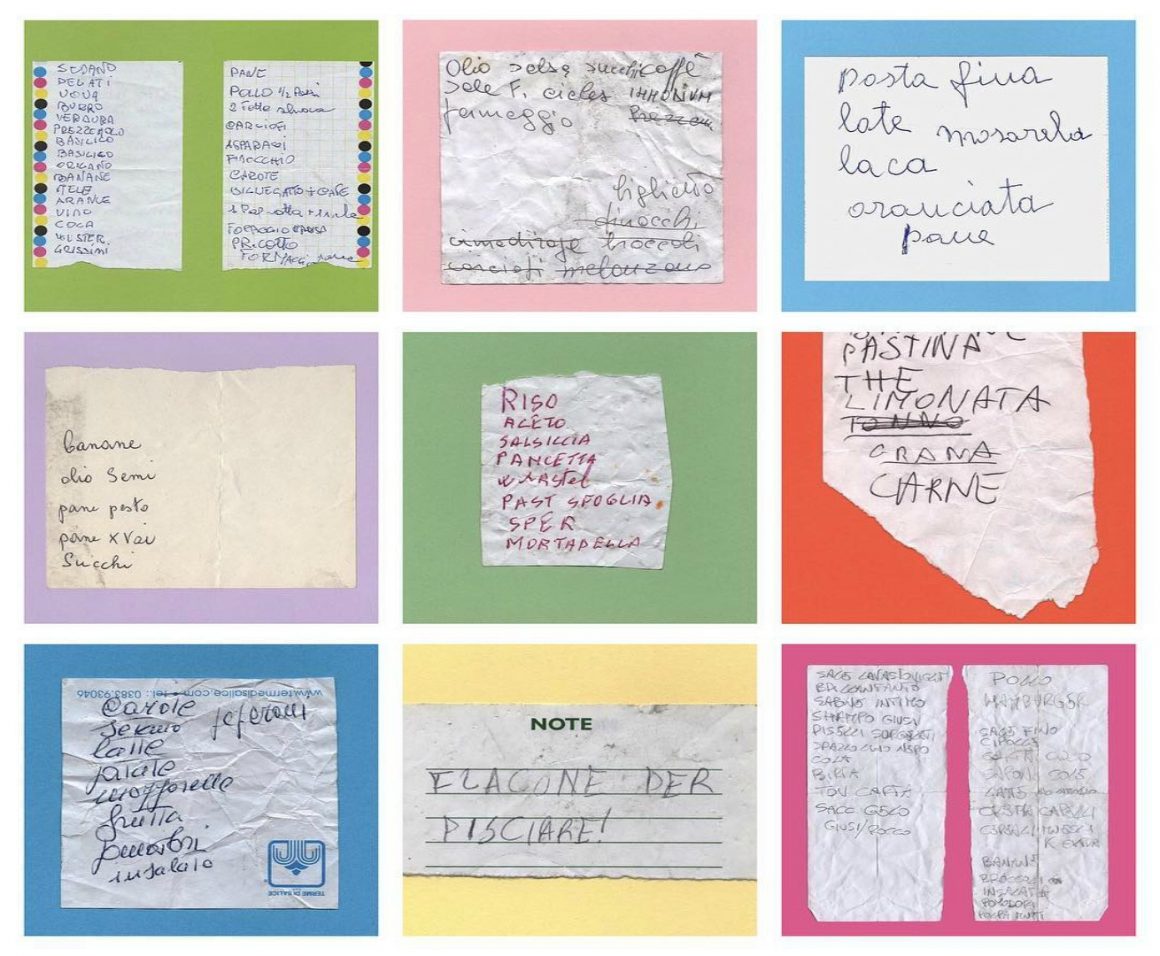 SEDANO
PELATI
UOVA
BURRO
VERDURA
PREZZEMOLO
BASILICO
BASILICO
ORIGANO
BANANE
MELE
ARANCE
VINO
COCA
GRISSINI
PANE
POLLO 1/2 Petti
2 Fette
CARCIOFI
ASPARAGI
FINOCCHIO
CAROTE
PANNA
FORMAGG. pane
Olio salsa succhi caffè
Sale F. cicles IMMONIUM
formaggio
biglietto
finocchi
cimedirape broccoli
carciofi melanzane
posta fina
late mosarela
laca
oranciata
pane
banane
olio Semi
pane pesto
pane x Voi
Succhi
RISO
ACETO
SALSICCIA
PANCETTA
wurstel
PAST SFOGLIA
SPER
MORTADELLA
PASTINA
THE
LIMONATA
TONNO
GRANA
CARNE
www.termedisalice.com - tel.: 0383.93046
Carote peperoni
sedano
latte
patate
mozzarella
frutta
pomodori
insalata
TERME DI SALICE
NOTE
FLACONE PER
PISCIARE!
SAPONE INTIMO
SHAMPO GIUSI
PISELLI SURGELATI
COLA
BIRRA
SACC GELO
GIUSI/ROCCO
POLLO
HAMBURGER
SALE FINO
CIPOLLE
BANANE
BROCCOLI
INSALATA
POMODORI